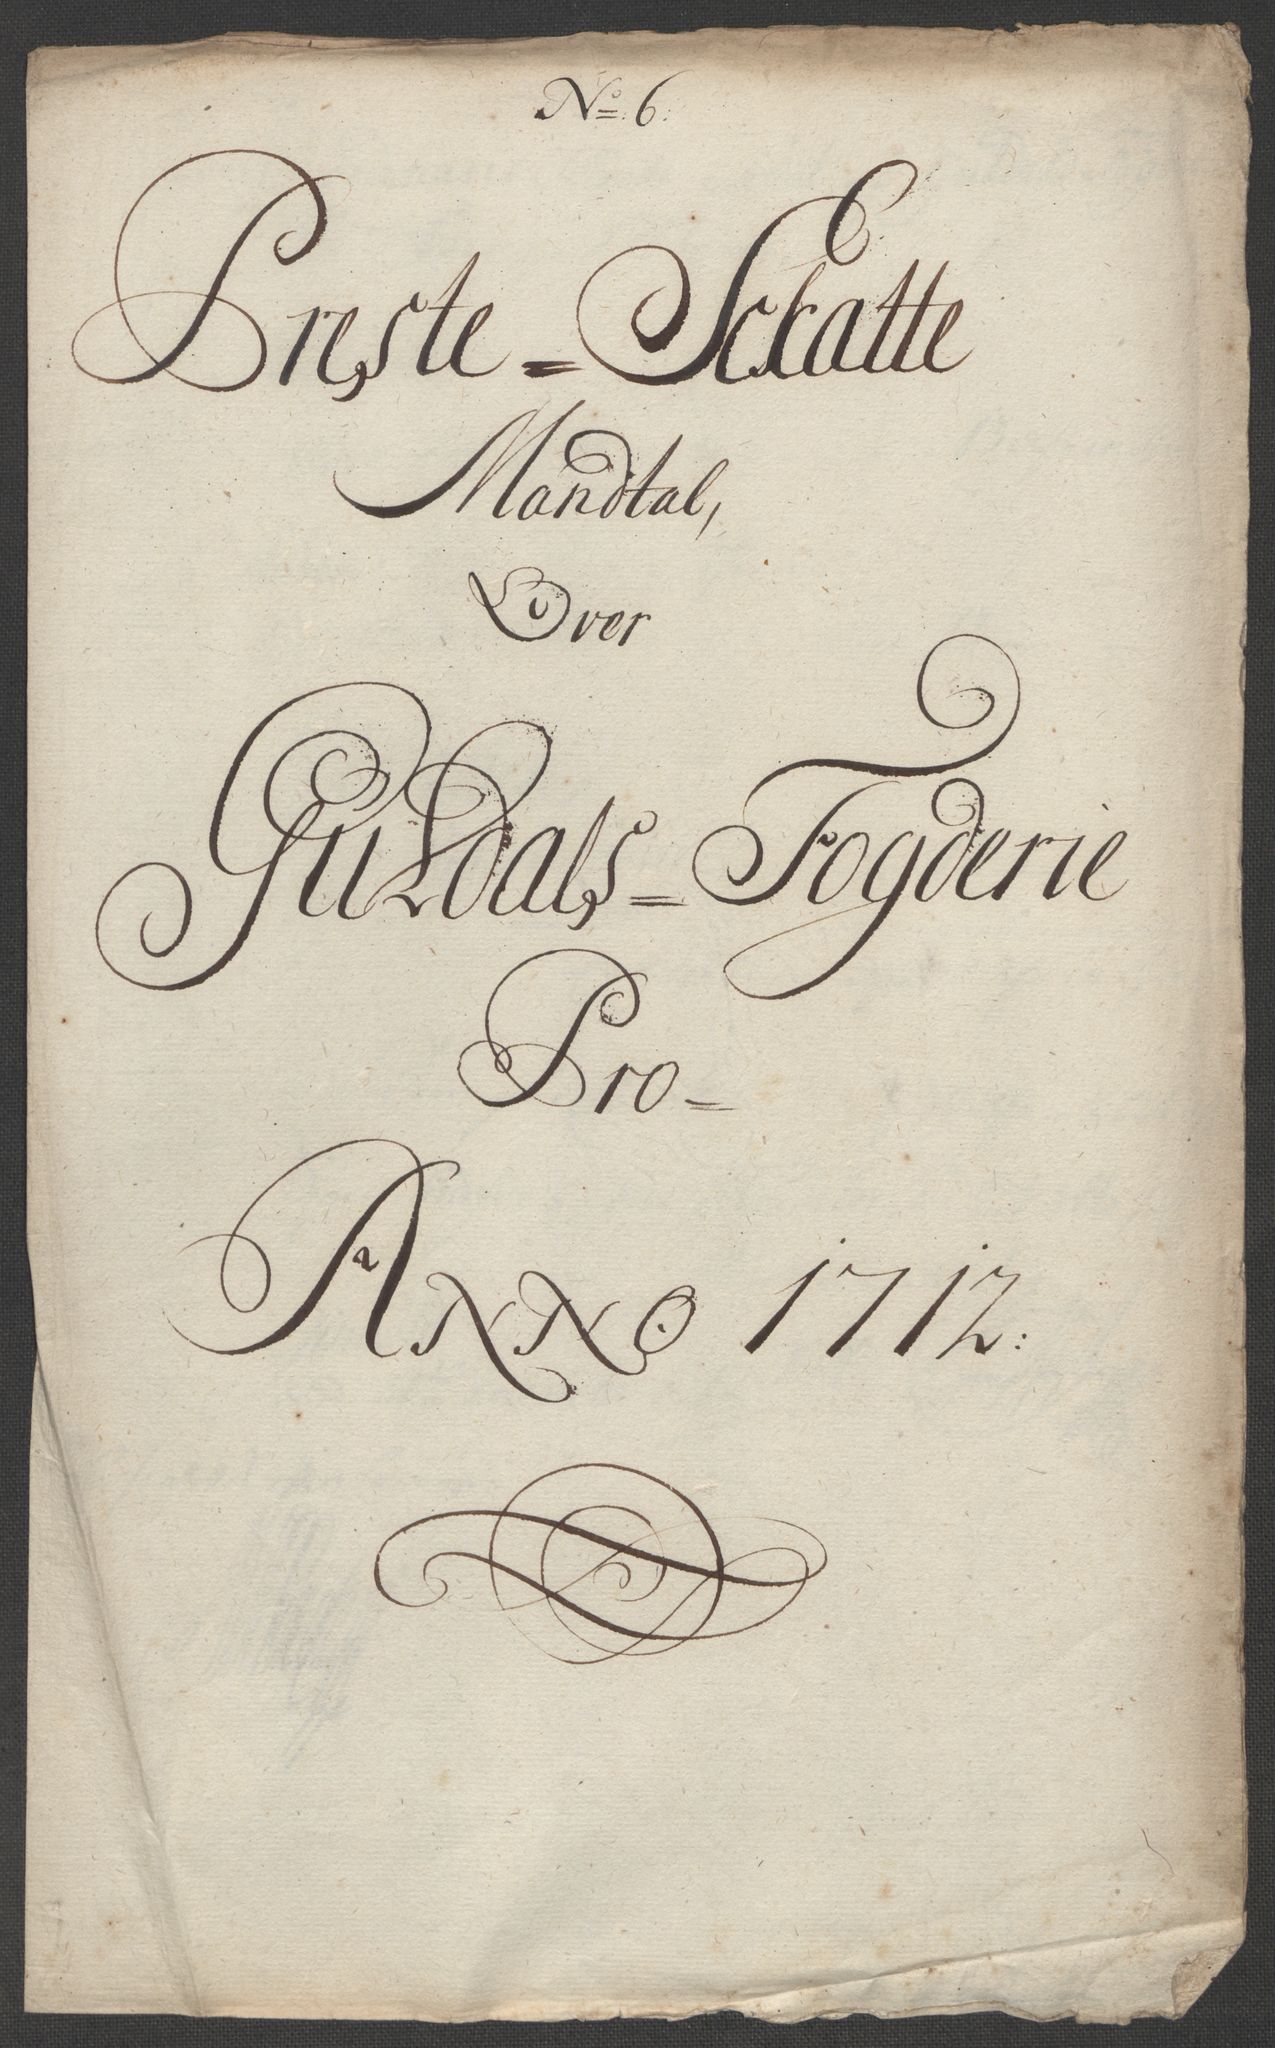 No. 6.
Preste = Sckatte
Mandtal,
Over
Guldals = Fogderie
Pro =
Anno 1712: